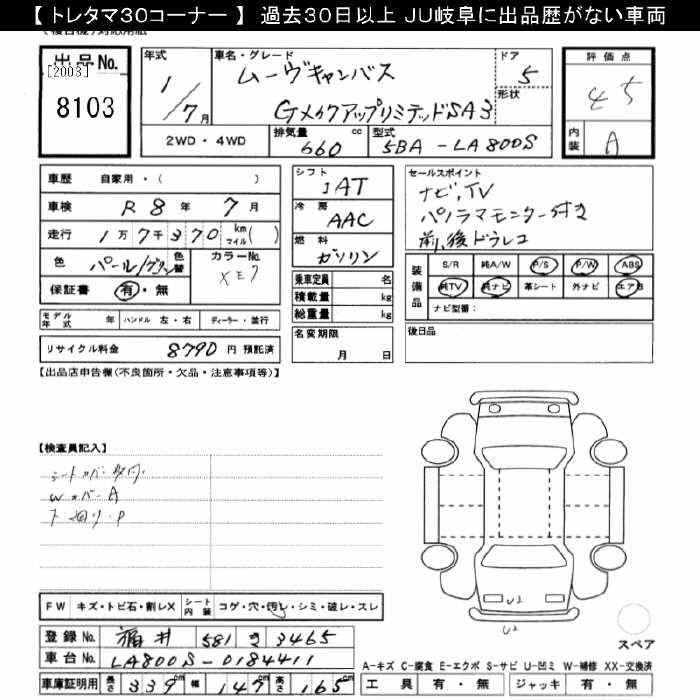 【トレタマ30コーナー】 過去30日以上 JU岐阜に出品歴がない車両
出品No.
[2003]
8103
年式
1/7月
車名・グレード
ムーヴキャンバス
GメイクアップリミテッドSA3
ドア
5
形状
評価点
4.5
内装
A
2WD・4WD
排気量 660 cc
型式 5BA-LA800S
車歴 自家用・( )
車検 R 8 年 7 月
走行 1万7千370 km マイル( )
色 パール/グリーン 色替
カラーNo. XE7
保証書 有・無
モデル年式 年 ハンドル 左・右 ディーラー・並行
リサイクル料金 8790 円 預託済
シフト
IAT
冷房
AAC
燃料
ガソリン
乗車定員 名
積載量 kg
総重量 kg
名変期限
月 日
セールスポイント
ナビ,TV
パノラマモニター付き
前,後ドラレコ
装備品
S/R 純A/W P/S P/W ABS
純TV 純ナビ 革シート 外ナビ エアB
ナビ型番:
後日品
【出品店申告欄(不良箇所・欠品・注意事項等)】
【検査員記入】
シートカバー取付
Wカバー A
下回り・P
U2
U2
スペア
FW キズ・トビ石・割レX シート内装 コゲ・穴・汚レ・シミ・破レ・スレ
登録No. 福井 581 3465
車台No. LA800S-0184411
車庫証明用 長さ 339 cm 幅 147 cm 高さ 165 cm
A-キズ C-腐食 E-エクボ S-サビ U-凹ミ W-補修 XX-交換済
工具 有・無 ジャッキ 有・無